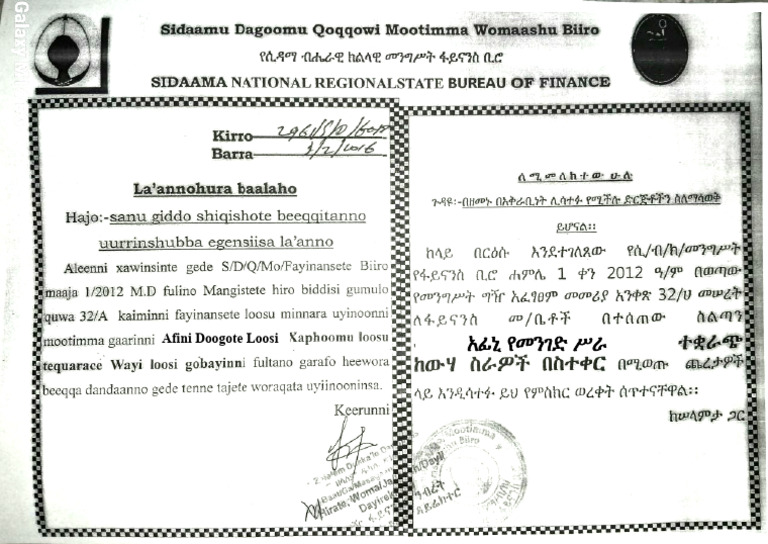 Sidaamu Dagoomu Qoqqowi Mootimma Womaashu Biiro
የሲዳማ ብሔራዊ ክልላዊ መንግሥት ፋይናንስ ቢሮ
SIDAAMA NATIONAL REGIONALSTATE BUREAU OF FINANCE
Kirro
Barra 3/2/2016
La'annohura baalaho
Hajo:-sanu giddo shiqishote beeqqitanno
uurrinshubba egensiisa la'anno
Aleenni xawinsinte gede S/D/Q/Mo/Fayinansete Biiro
maaja 1/2012 M.D fulino Mangistete hiro biddisi gumulo
quwa 32/A kaiminni fayinansete loosu minnara uyinoonni
mootimma gaarinni Afini Doogote Loosi Xaphoomu loosu
tequarace Wayi loosi gobayinni fultano garafo heewora
beeqqa dandaanno gede tenne tajete woraqata uyiinooninsa.
Keerunni
ለሚመለከተው ሁሉ
ጉዳዩ፡-በዘመኑ በአቅራቢነት ሊሳተፉ የሚችሉ ድርጅቶችን ስለማሳወቅ
ይሆናል፡፡
ከላይ በርዕሱ እንደተገለጸው የሲ/ብ/ክ/መንግሥት
የፋይናንስ ቢሮ ሐምሌ 1 ቀን 2012 ዓ/ም በወጣው
የመንግሥት ግዥ አፈፃፀም መመሪያ አንቀጽ 32/ሀ መሠረት
ለፋይናንስ መ/ቤቶች በተሰጠው ስልጣን
አፊኒ የመንገድ ሥራ ተቋራጭ
ከውሃ ስራዎች በስተቀር በሚወጡ ጨረታዎች
ላይ እንዲሳተፉ ይህ የምስክር ወረቀት ሰጥተናቸዋል፡፡
ከሠላምታ ጋር
Mootimma
Biiro
ዳይሬክተር
Galaxy